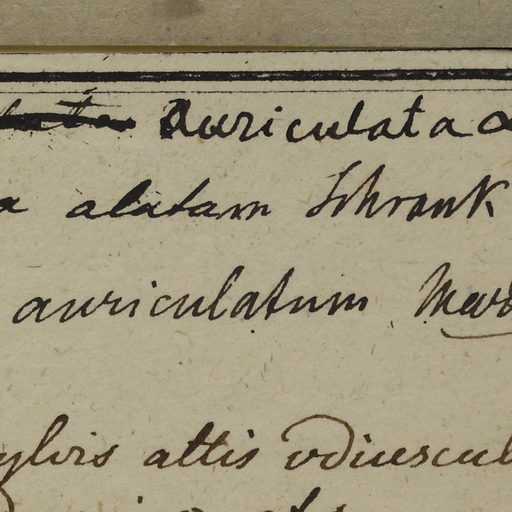 Auriculata a
a alatam Schrank
auriculatum Mar
ylvis altis udiuscul